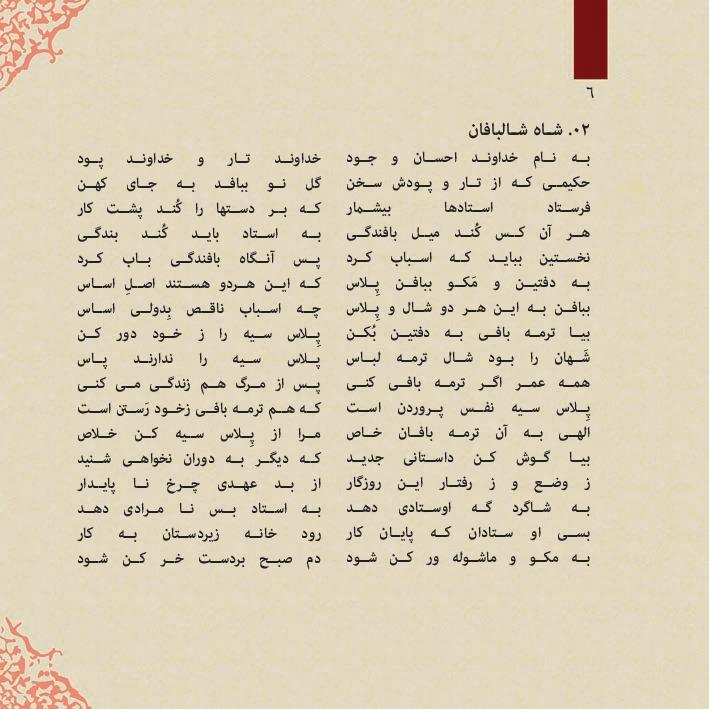 ٦
٠٢. شاه شالبافان
به نام خداوند احسان و جود خداوند تار و خداوند پود
حکیمی که از تار و پودش سخن گل نو ببافد به جای کهن
فرستاد استادها بیشمار که بر دستها را کُند پشت کار
هر آن کس کُند میل بافندگی به استاد باید کُند بندگی
نخستین بباید که اسباب کرد پس آنگاه بافندگی باب کرد
به دفتین و مَکو ببافن پِلاس که این هردو هستند اصلِ اساس
ببافن به این هر دو شال و پِلاس چه اسباب ناقص بِدولی اساس
بیا ترمه بافی به دفتین بُکن پِلاس سیه را ز خود دور کن
شَهان را بود شال ترمه لباس پلاس سیه را ندارند پاس
همه عمر اگر ترمه بافی کنی پس از مرگ هم زندگی می کنی
پِلاس سیه نفس پروردن است که هم ترمه بافی زخود رَستن است
الهی به آن ترمه بافان خاص مرا از پِلاس سیه کن خلاص
بیا گوش کن داستانی جدید که دیگر به دوران نخواهی شنید
ز وضع و ز رفتار این روزگار از بد عهدی چرخ نا پایدار
به شاگرد گه اوستادی دهد به استاد بس نا مرادی دهد
بسی او ستادان که پایان کار رود خانه زیردستان به کار
به مکو و ماشوله ور کن شود دم صبح بردست خر کن شود